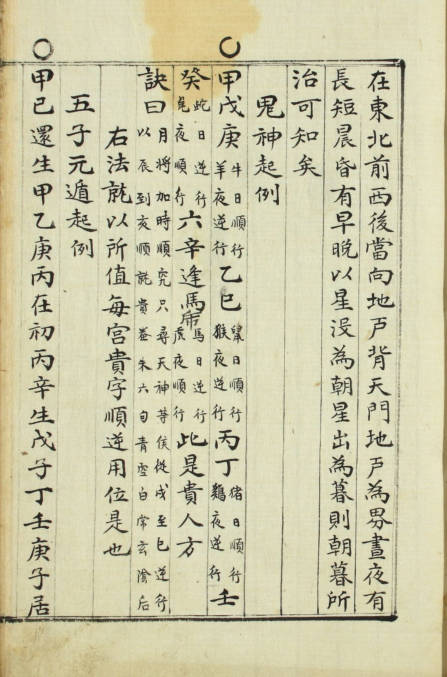 在東北前西後當向地戸背天門地戸為界晝夜有
長短晨昏有早晚以星没為朝星出為暮則朝暮所
治可知矣
鬼神起例
甲戊庚牛日順行羊夜逆行乙巳鼠日順行猴夜逆行丙丁猪日順行鷄夜逆行壬
癸蛇日逆行兔夜順行六辛逢馬乕馬日逆行虎夜順行此是貴人方
訣曰月將加時順究只尋天神等侯從戌至巳逆行以辰到亥順就貴朱六勾青空白常玄陰后
右法就以所值每宮貴字順逆用位是也
五子元遁起例
甲巳還生甲乙庚丙在初丙辛生戊子丁壬庚子居